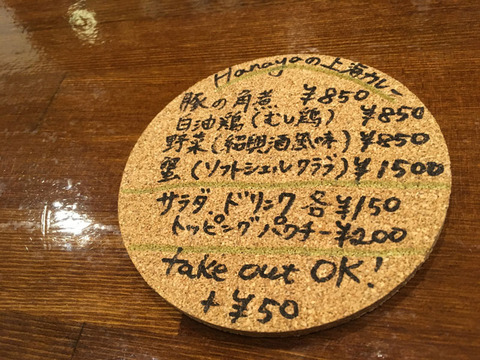 Hanayaの上海カレー
豚の角煮 ¥850
白油鶏(むし鶏) ¥850
野菜(紹興酒風味) ¥850
蟹(ソフトシェルクラブ) ¥1500
サラダ、ドリンク 各¥150
トッピングパクチー¥200
take out OK!
+¥50